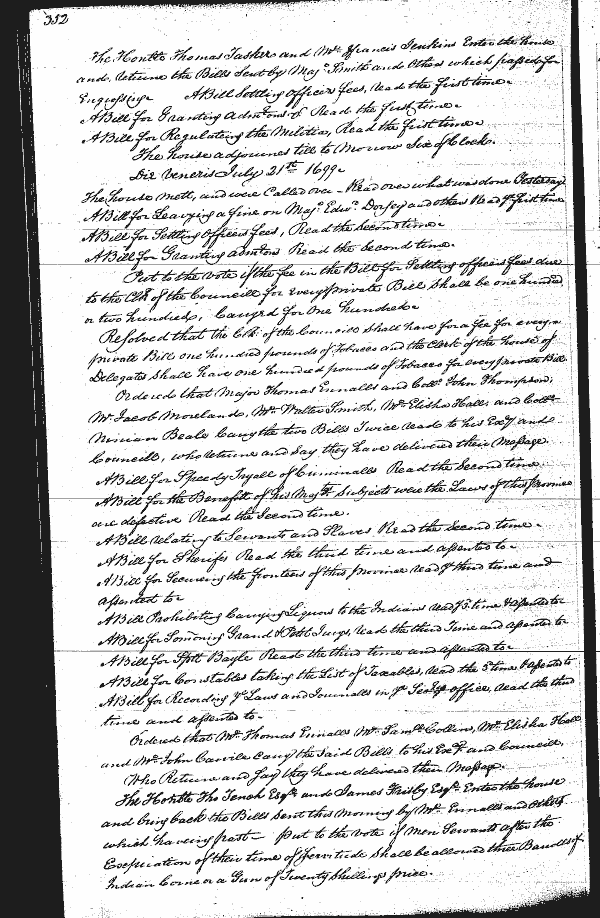 352
The Honble Thomas Tasker and Mr. Francis Jenkins Enter the house
and returne the Bills Sent by Majr. Smith and others which passed for
Engrossing A Bill Settling officers fees, read the first time.
A Bill for Granting Admtons &c Read the first time.
A Bill for Regulating the Militia, Read the first time.
The house adjournes till to Morrow Six of Clock.
Die Veneris July 21st 1699.
The house mett, and were Called over. Read over what was done Yesterday
A Bill for Leavying a fine on Majr. Edwd. Dorsey and others Read ye first time
A Bill for Settling officers fees, Read the Second time.
A Bill for Granting admtons Read the Second time.
Put to the Vote if the fee in the Bill for Settling officers fees due
to the Clk of the Councill for every private Bill shall be one hundred
or two hundred, Carryed for One hundred.
Resolved that the Clk. of the Councill Shall have for a fee for every
private Bill one hundred pounds of Tobacco and the Clerk of the house of
Delegates Shall have one hundred pounds of Tobacco for every private Bill
Ordered that Major Thomas Ennalls and Collo. John Thompson,
Mr. Jacob Moreland, Mr. Walter Smith, Mr. Elisha Hall, and Collo.
Ninian Beale Carry the two Bills Twice read to his Excy. and
Councill, who returne and Say they have delivered their Message
A Bill for Speedy Tryall of Criminalls Read the Second time.
A Bill for the Benefitt of his Majtys. Subjects were the Laws of this province
are defective Read the Second time.
A Bill relating to Servants and Slaves Read the Second time.
A Bill for Sherifs Read the third time and assented to.
A Bill for Secureing the frontiers of this province read ye third time and
assented to.
A Bill Prohibiting Carrying Liquors to the Indians read ye 3. time & assented to
A Bill for Somoning Grand & Petit Jurys, read the third Time and assented to
A Bill for Bayle Read the third time and assented to.
A Bill for Constables taking the List of Taxables, read the 3d time & assented to
A Bill for Recording ye Laws and Journalls in ye office, read the third
time and assented to.
Ordered that Mr. Thomas Ennalls Mr. Samll. Collins, Mr. Elisha Hall
and Mr. John Carvile Carry the said Bills to his Excy. and Councill,
Who Returne and Say they have delivered their Message.
The Honble Tho Tench Esqr. and James Frisby Esqr. Enter the house
and bring back the Bills Sent this Morning by Mr. Ennalls and others
which haveing past. Put to the Vote if Men Servants after the
Exspiration of their time of Servitude Shall be allowed three Barrells of
Indian Corne or a Gun of Twenty Shillings price.